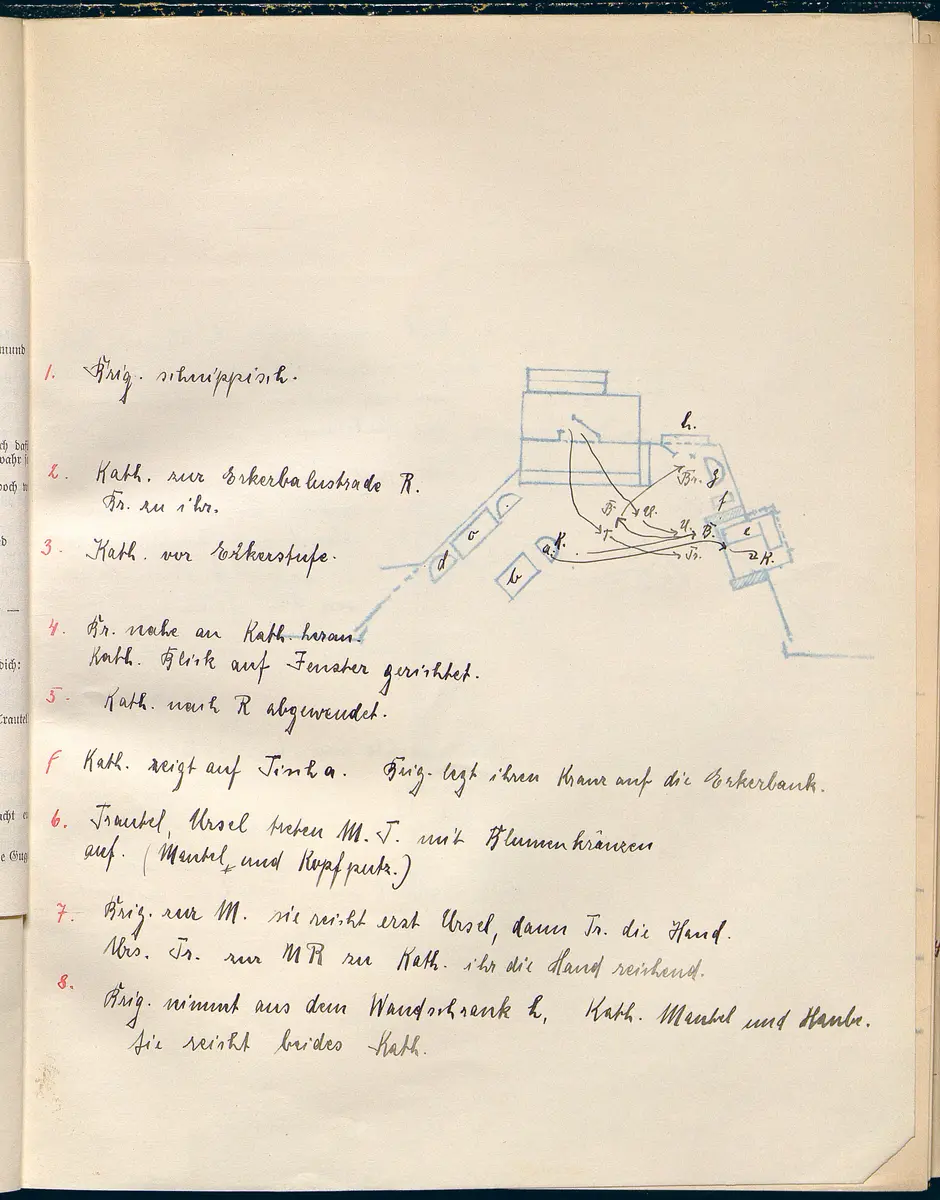 mund
1. Brig. schnippisch.
ch daß
wahr si
2. Kath. zur Erkerbalustrade R.
noch w
Br. zu ihr.
3. Kath. vor Erkerstufe.
d
—
4. Br. nahe an Kath. heran.
Kath. Blick auf Fenster gerichtet.
dich:
5. Kath. nach R abgewendet.
Trautel
f Kath. zeigt auf Tisch a. Brig. legt ihren Kranz auf die Erkerbank.
acht e
6. Trautel, Ursel treten M. T. mit Blumenkränzen
e Gug
auf. (Mantel und Kopfputz.)
7. Brig. zur M. sie reicht erst Ursel, dann Tr. die Hand.
Urs. Tr. zur MR zu Kath. ihr die Hand reichend.
8. Brig. nimmt aus dem Wandschrank h, Kath. Mantel und Haube.
Sie reicht beides Kath.
h.
Br. g
f
B. U.
T. U. B. e
c
a. K. Tr. K.
d
b